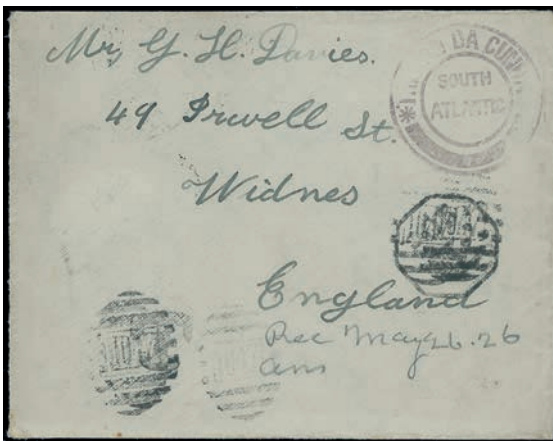 Mr G. H. Davies.
49 Irwell St.
Widnes
England
Rec May 26. 26
ans
DA CUN
SOUTH
ATLANTIC